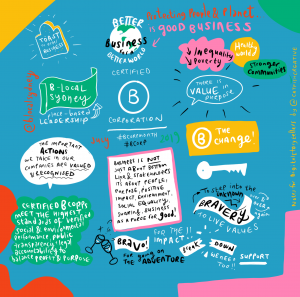 Betting People & Planet
is GOOD BUSINESS
TOAST
TO GREAT
BUSINESS!
BETTER
Business
for a
BETTER WORLD
↓ Inequality
Poverty
Healthy
world!
stronger
communities
B-LOCAL
SYDNEY
place-based
LEADERSHIP
CERTIFIED
B
CORPORATION
THERE IS
VALUE IN
PURPOSE
#BCORPMONTH
#BCORP
2019
B THE
CHANGE!
THE IMPORTANT
ACTIONS
WE TAKE IN OUR
COMPANIES ARE VALUED
& RECOGNISED
BUSINESS IS NOT
JUST ABOUT BOTTOM
LINE & STAKEHOLDERS
IT'S ABOUT PEOPLE,
PURPOSE, POSITIVE
IMPACT, ENVIRONMENT,
SOCIAL, EQUALITY,
SHARING... BUSINESS
AS A FORCE for good!
to step into the
unknown
BRAVERY
to LIVE
VALUES
CERTIFIED B CORPS
MEET THE HIGHEST
STANDARDS OF VERIFIED
SOCIAL & ENVIRONMENTAL
PERFORMANCE, PUBLIC
TRANSPARENCY, LEGAL
ACCOUNTABILITY TO
BALANCE PROFIT & PURPOSE
BRAVO!
FOR going ON
THE ADVENTURE
FOR THE
IMPACT
FREAK DOWN
WE NEED
TOO!!
SUPPORT